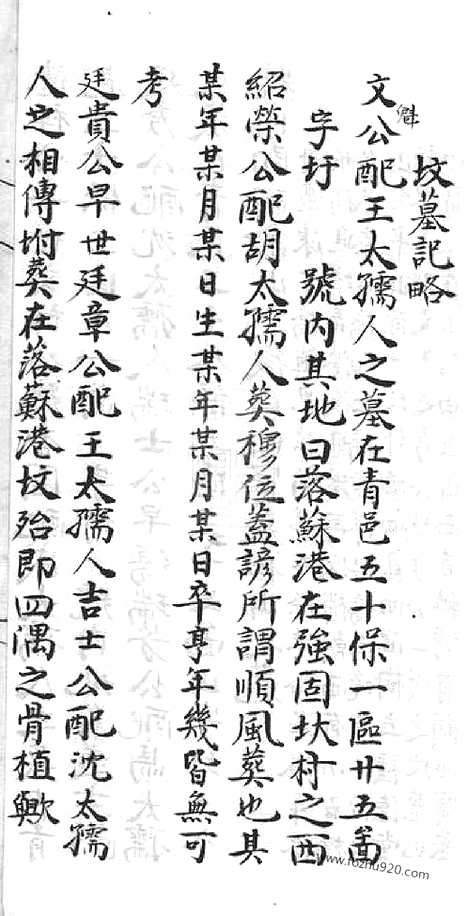 坟墓記略
文魁公配王太孺人之墓在青邑五十保一區廿五啚
字圩 號内其地曰落蘇港在強固圤村之西
紹榮公配胡太孺人葬穆位蓋諺所謂順風葬也其
某年某月某日生某年某月某日卒亨年幾皆無可
考
廷貴公早世廷章公配王太孺人吉士公配沈太孺
人之相傳坿葬在落蘇港坟殆即四隅之骨植歟
www.fozhu920.com